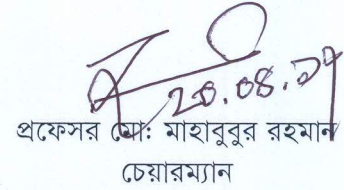 ২০.০৪.১৭
প্রফেসর মো: মাহাবুবুর রহমান
চেয়ারম্যান